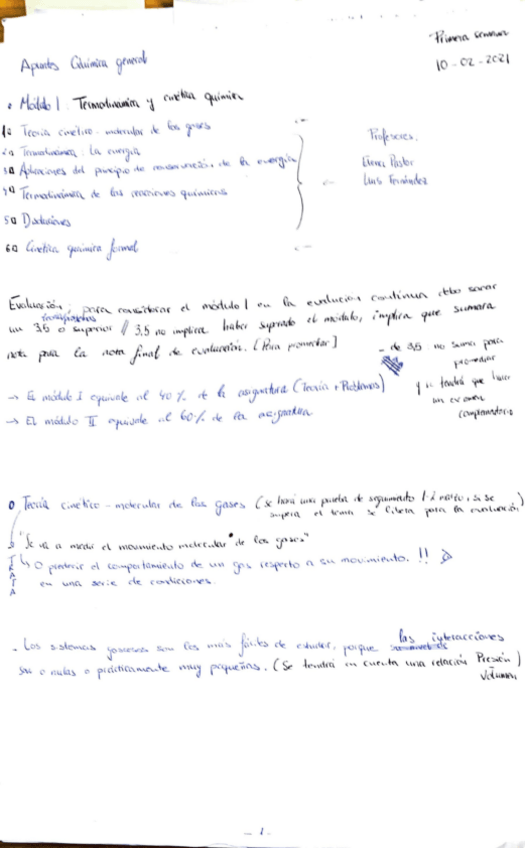 Primera semana
10-02-2021
Apuntes Química general
• Módulo 1: Termodinámica y cinética química
1º Teoría cinético-molecular de los gases
2º Termodinámica: La energía
3º Aplicaciones del principio de conservación de la energía
4º Termodinámica de las reacciones químicas
5º Disoluciones
6º Cinética química formal
Profesores:
Elena Pastor
Luis Fernández
Evaluación: para considerar el módulo 1 en la evalución continua debo sacar
un 3,5 o superior // 3.5 no implica haber suprado el módulo, implica que sumara
nota para la nota final de evaluación. [Para promediar]
- de 3,5 no suma para
promediar
y se tendrá que hacer
un examen
compensatorio
→ El módulo I equivale al 40% de la asignatura (Teoría + Problemas)
→ El módulo II equivale al 60% de la asignatura
o Teoría cinético-molecular de los gases (se hará una prueba de seguimiento 1-2 marzo, si se
supera el tema se libera para la evaluación)
TRATA
"Se va a medir el movimiento molecular" de los gases"
↳ O predecir el comportamiento de un gas respecto a su movimiento. !!
en una serie de condiciones.
- Los sistemas gaseosos son los más fáciles de estudiar, porque las interacciones
son o nulas o prácticamente muy pequeñas. (Se tendrá en cuenta una relación Presión)
Volumen
- 1 -